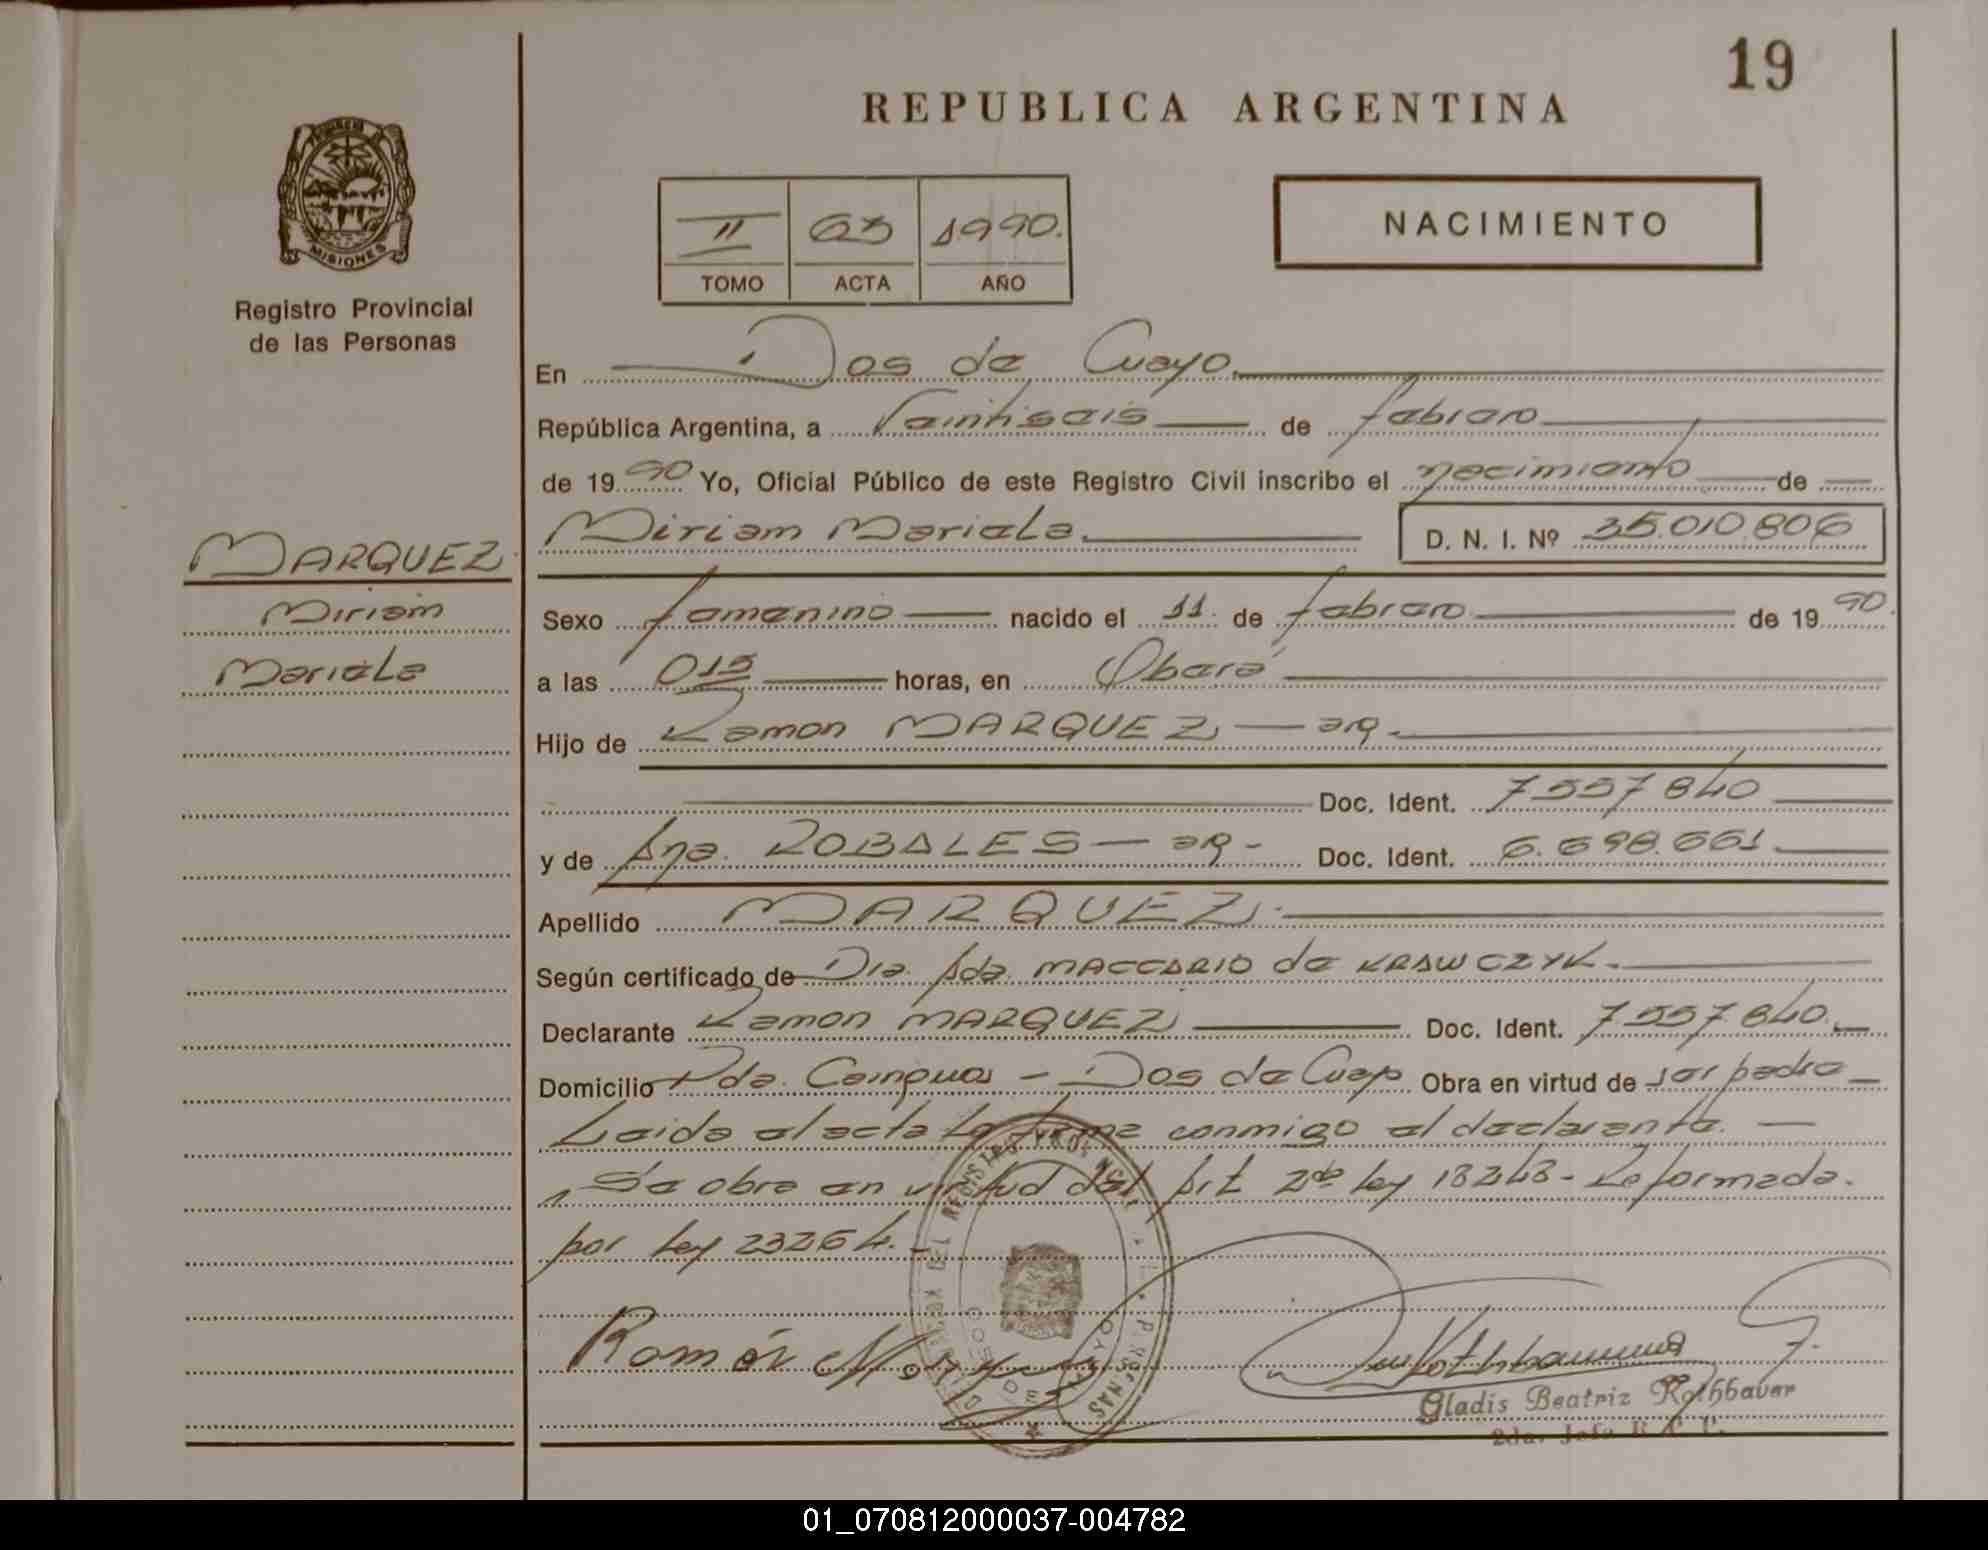 19
REPUBLICA ARGENTINA
MISIONES
Registro Provincial
de las Personas
II 63 1990.
TOMO ACTA AÑO
NACIMIENTO
En Dos de Cuayo.
República Argentina, a Veintiseis de febrero
de 1990 Yo, Oficial Público de este Registro Civil inscribo el nacimiento de
Miriam Mariela. D. N. I. Nº 35.010.806
MARQUEZ
Miriam
Mariela
Sexo femenino nacido el 11. de febrero de 1990.
a las 015 horas, en Oberá
Hijo de Ramon MARQUEZ - arg.
Doc. Ident. 7557840
y de Ana ROBALES - arg - Doc. Ident. 6.698.661
Apellido MARQUEZ.
Según certificado de Dra. Ada MACCARIO de KRAWCZYK.
Declarante Ramon MARQUEZ Doc. Ident. 7557840.
Domicilio Pda. Cainguas - Dos de Cuayo Obra en virtud de ser padre
Leida el acta la firma conmigo el declarante.
Se obra en virtud del Art 2do ley 18248 - Reformada
por ley 23264.
Ramón Marquez
DOS DE
Gladis Beatriz Rothbauer
2da. Jefe R. C. P.
01_070812000037-004782